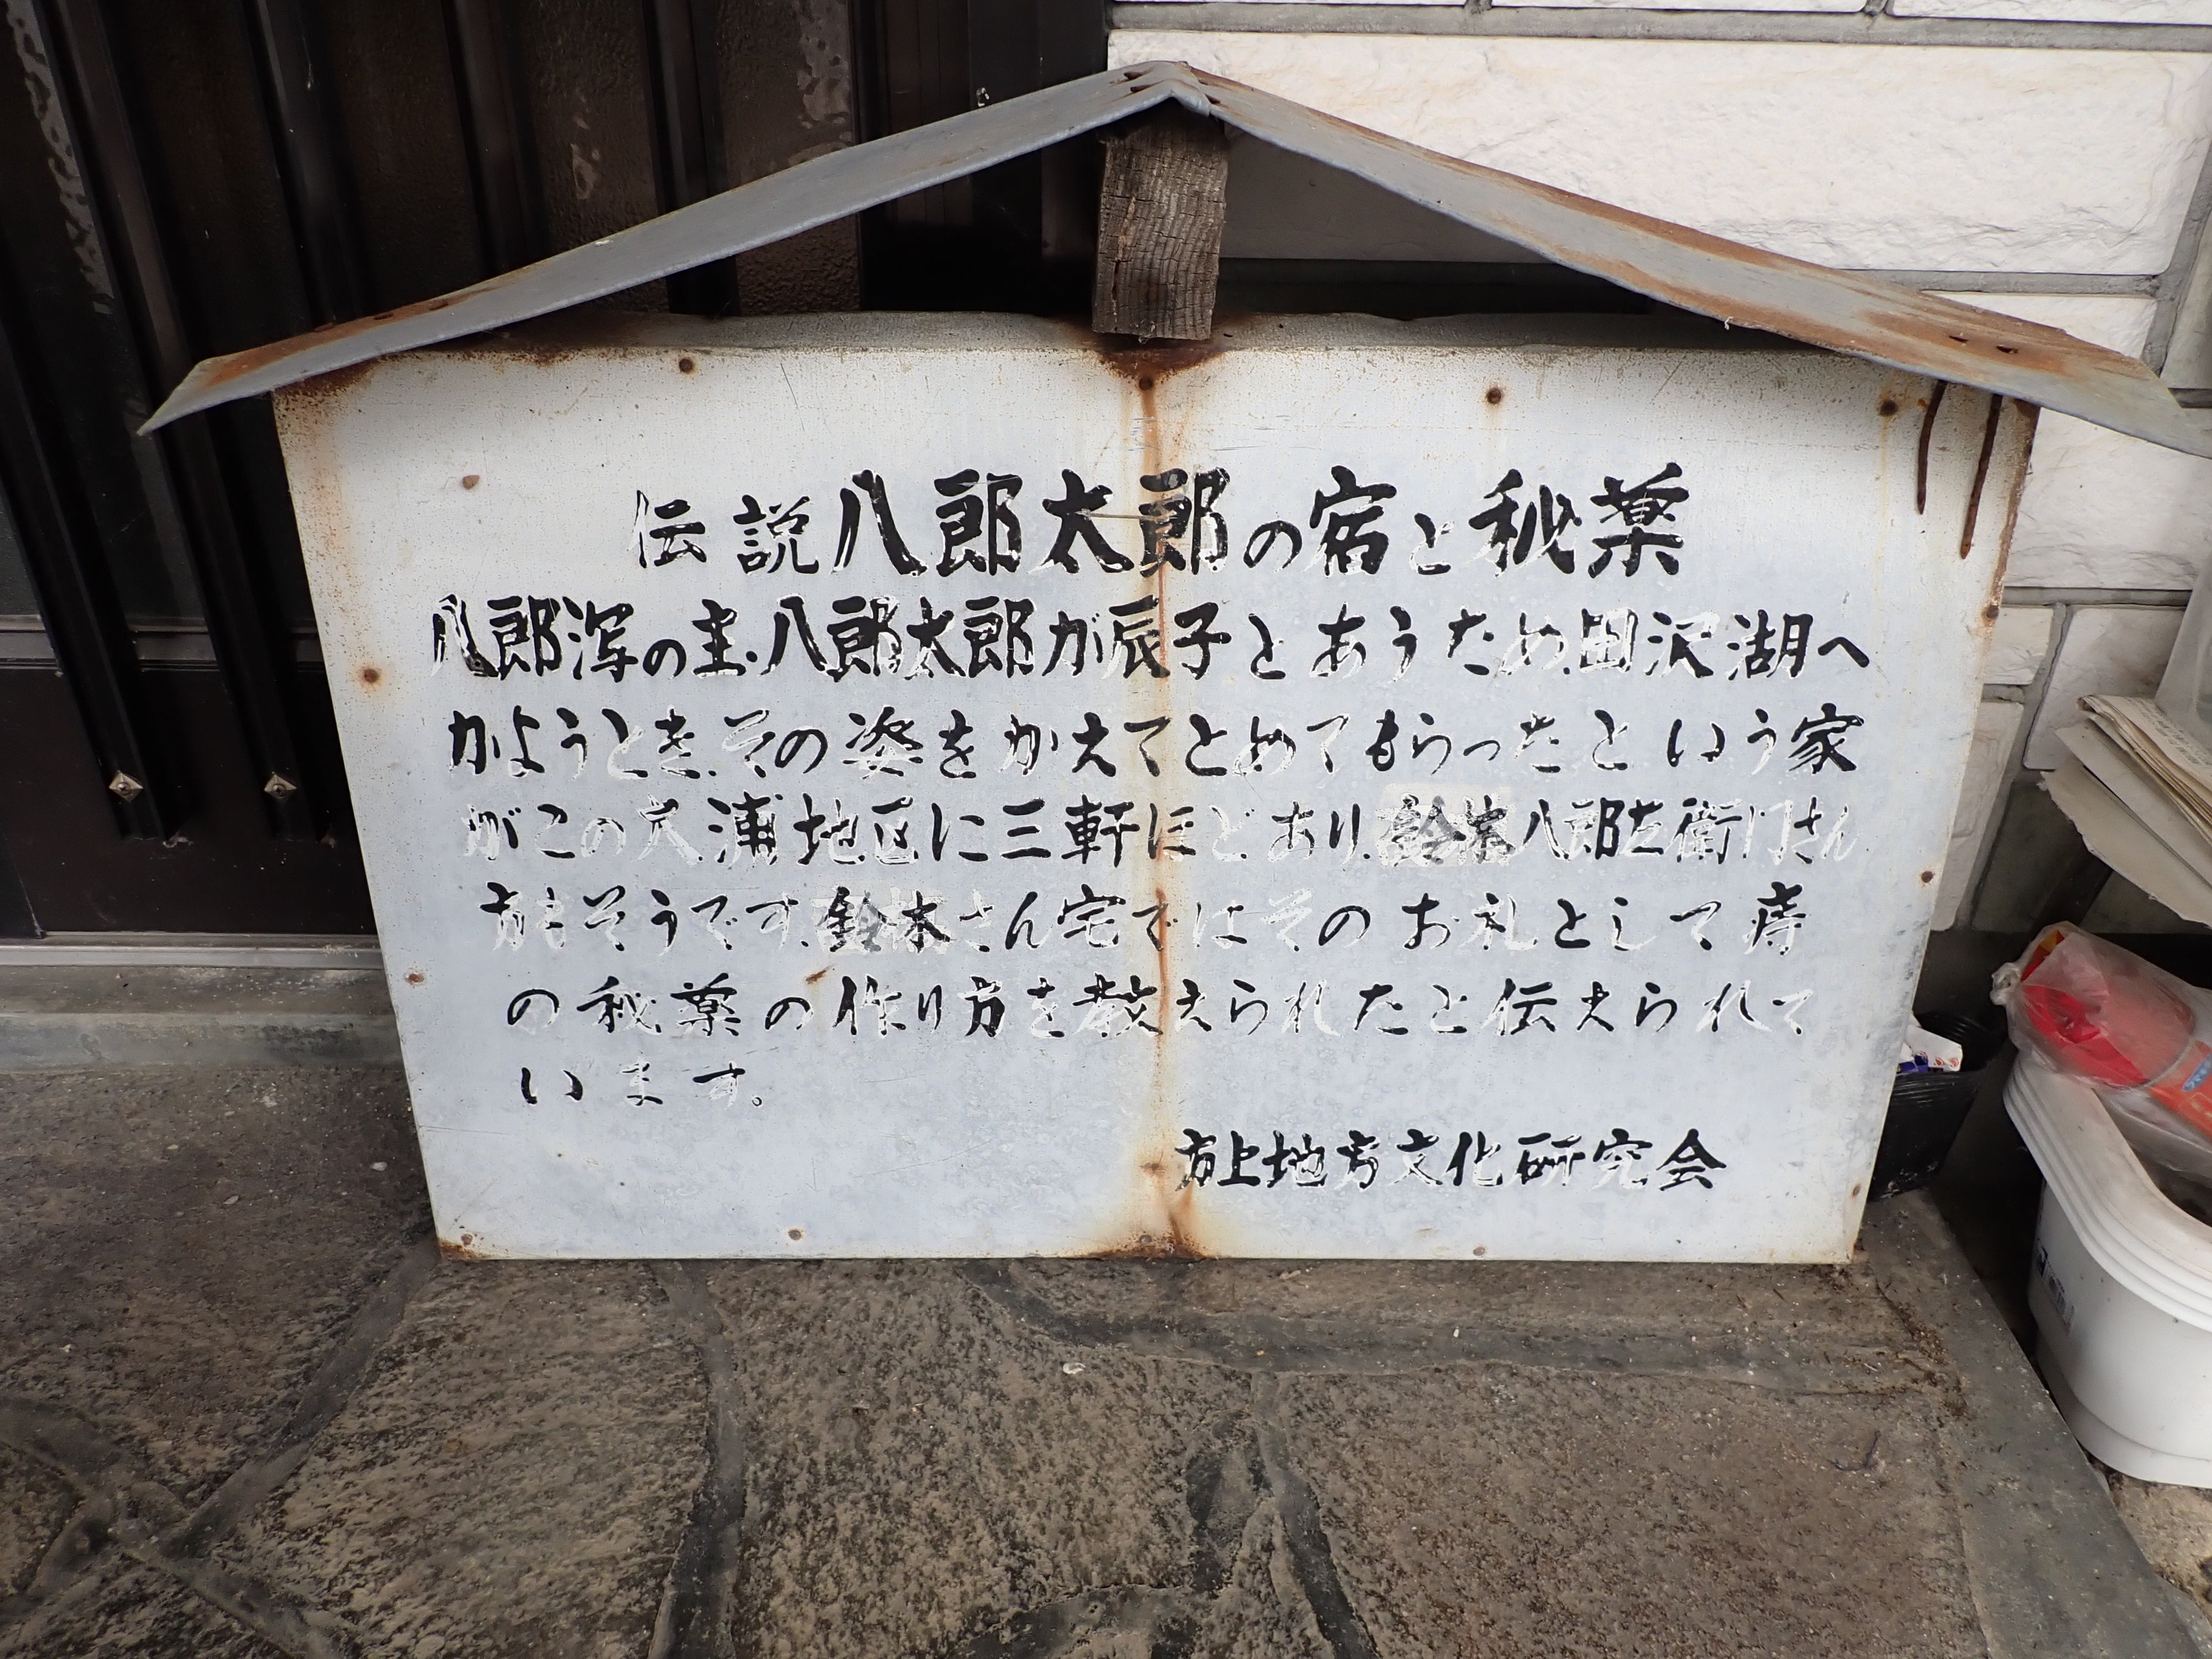 伝説八郎太郎の宿と秘薬
八郎潟の主、八郎太郎が辰子とあうため、田沢湖へ
かようとき、その姿をかえてとめてもらったという家
がこの大浦地区に三軒ほどあり、鈴木八郎左衛門さん
方もそうです。鈴木さん宅ではそのお礼として痔
の秘薬の作り方を教えられたと伝えられて
います。
方上地方文化研究会